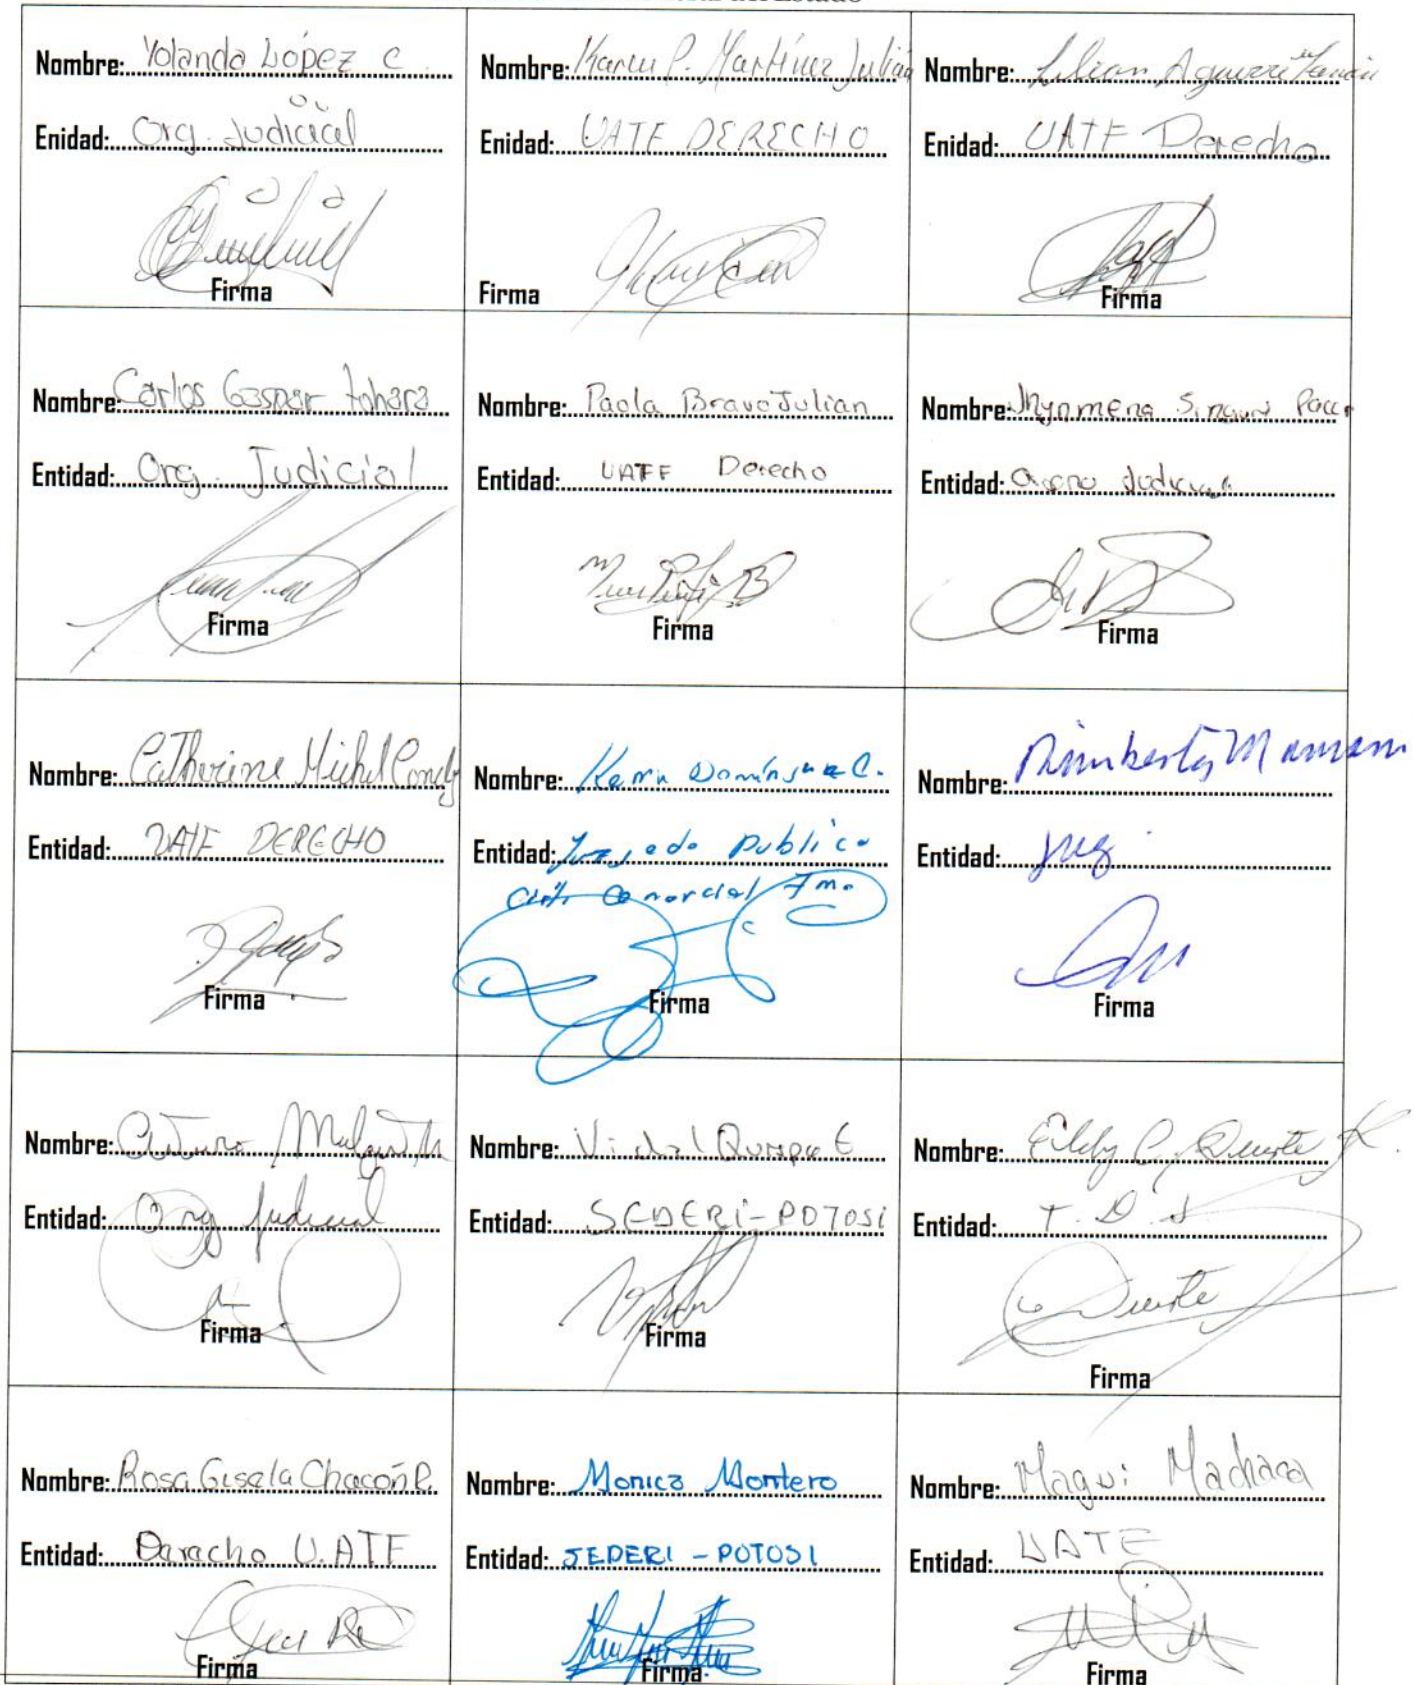 del Estado
Nombre: Yolanda López C.
Enidad: Org. Judicial
Firma
Nombre: Karen P. Martínez Julián
Enidad: UATF DERECHO
Firma
Nombre: Lilian Aguirre
Enidad: UATF Derecho
Firma
Nombre: Carlos Gaspar
Entidad: Org. Judicial
Firma
Nombre: Paola Bravo Julian
Entidad: UATF Derecho
Firma
Nombre:
Entidad: Judicial
Firma
Nombre: Catherine Michel
Entidad: UATF DERECHO
Firma
Nombre: Karin C.
Entidad: Juzgado Publico
Comercial 7mo
Firma
Nombre: Mamani
Entidad: Juez
Firma
Nombre: Arturo
Entidad: Org Judicial
Firma
Nombre: Vidal Quispe E
Entidad: SEDERI-POTOSI
Firma
Nombre: Eddy C.
Entidad: T. D. J
Firma
Nombre: Rosa Gisela Chacón R.
Entidad: Derecho U.ATF
Firma
Nombre: Monica Montero
Entidad: SEDERI - POTOSI
Firma
Nombre: Magui Machaca
Entidad: UATF
Firma